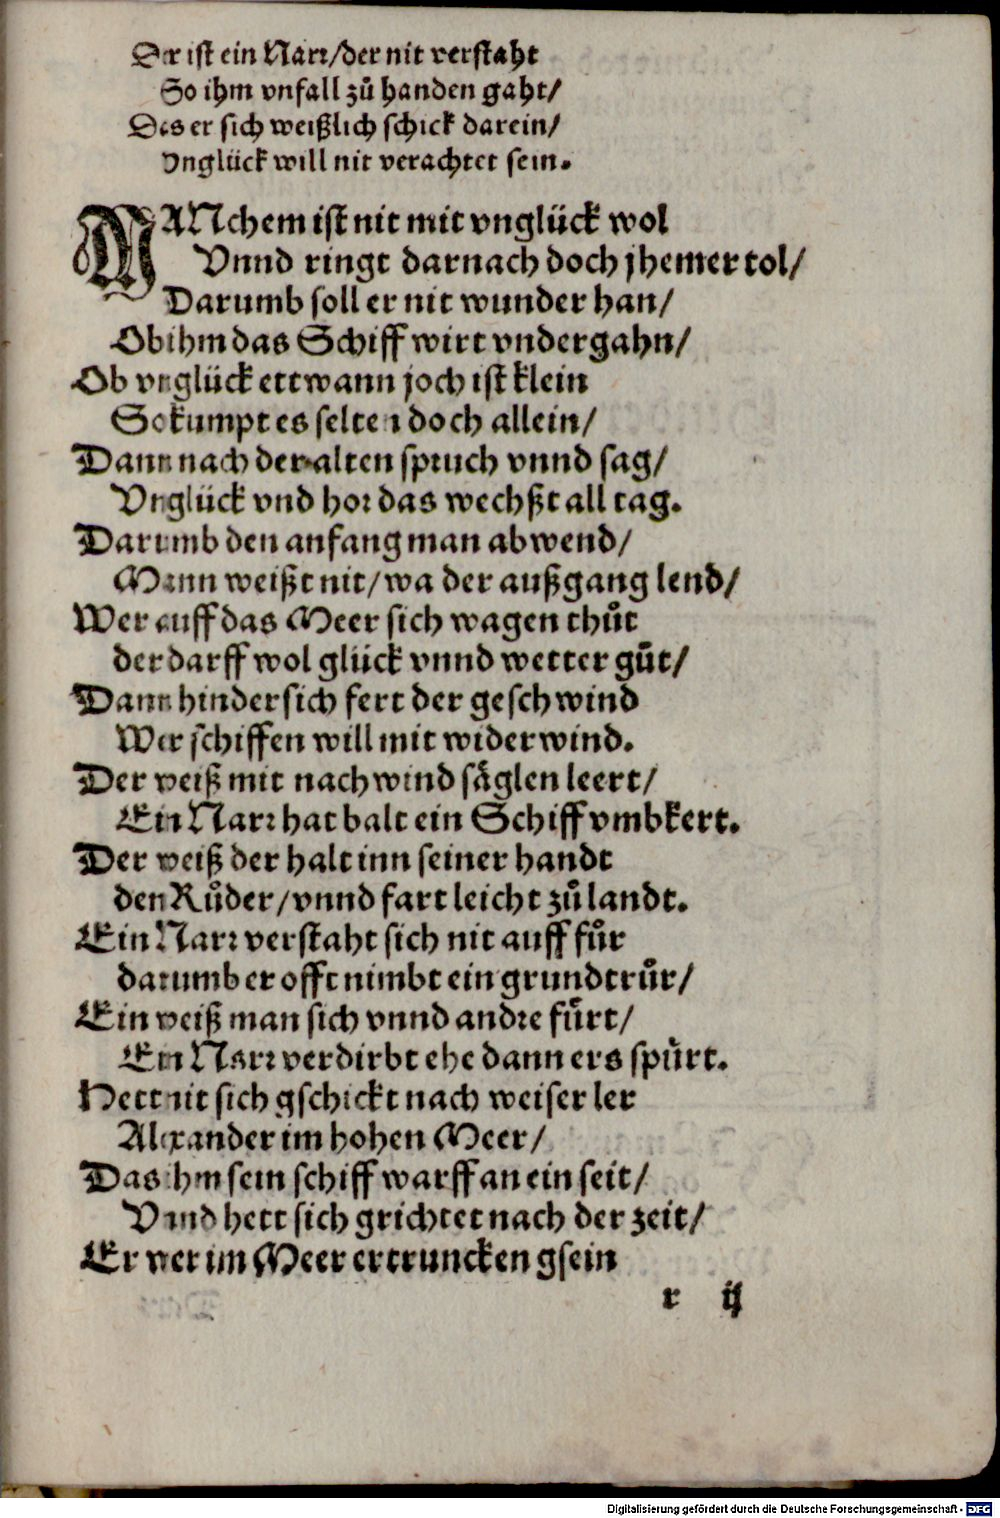 Der ist ein Narr/der nit verstaht
So ihm vnfall zů handen gaht/
Das er sich weißlich schick darein/
Vnglück will nit verachtet sein.
MANchem ist nit mit vnglück wol
Vnnd ringt darnach doch jhemer tol/
Darumb soll er nit wunder han/
Ob ihm das Schiff wirt vndergahn/
Ob vnglück ettwann joch ist klein
So kumpt es selten doch allein/
Dann nach der alten spruch vnnd sag/
Vnglück vnd hor das wechßt all tag.
Darumb den anfang man abwend/
Mann weißt nit/wa der außgang lend/
Wer auff das Meer sich wagen thůt
der darff wol glück vnnd wetter gůt/
Dann hindersich fert der geschwind
Wer schiffen will mit widerwind.
Der weiß mit nachwind säglen leert/
Ein Narr hat balt ein Schiff vmbkert.
Der weiß der halt inn seiner handt
den Růder/vnnd fart leicht zů landt.
Ein Narr verstaht sich nit auff fůr
darumb er offt nimbt ein grundtrůr/
Ein weiß man sich vnnd andre fürt/
Ein Narr verdirbt ehe dann ers spürt.
Hett nit sich gschickt nach weiser ler
Alexander im hohen Meer/
Das ihm sein schiff warff an ein seit/
Vnnd hett sich grichtet nach der zeit/
Er wer im Meer ertruncken gsein
r ij
Digitalisierung gefördert durch die Deutsche Forschungsgemeinschaft - DFG